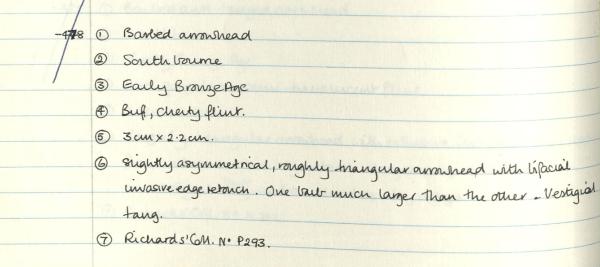 -478 ① Barbed arrowhead
② Southbourne
③ Early Bronze Age
④ Buf, cherty flint.
⑤ 3cm x 2.2cm.
⑥ slightly asymmetrical, roughly triangular arrowhead with bifacial
invasive edge retouch. One barb much larger than the other - Vestigial
tang.
⑦ Richards' Coll. No P293.